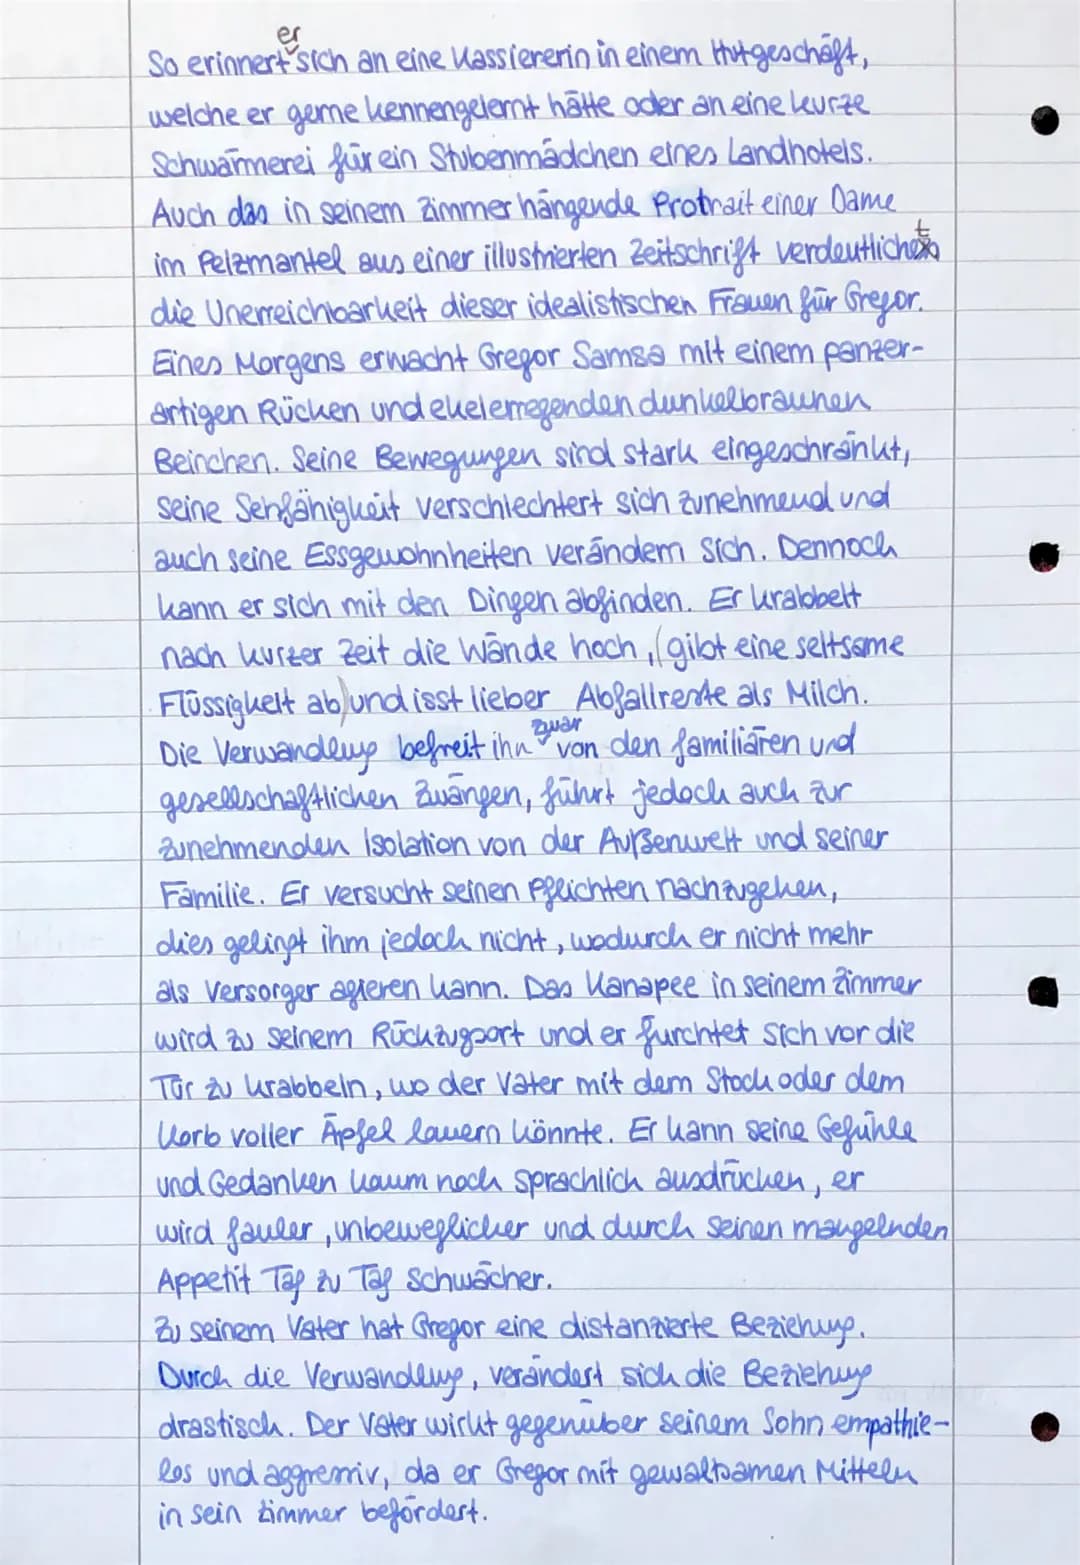 So erinnert er sich an eine Kassiererin in einem Hutgeschäft,
welche er gerne kennengelernt hätte oder an eine kurze
Schwärmerei für ein Stubenmädchen eines Landhotels.
Auch das in seinem Zimmer hängende Protrait einer Dame
im Pelzmantel aus einer illustrierten Zeitschrift verdeutlichet
die Unerreichbarkeit dieser idealistischen Frauen für Gregor.
Eines Morgens erwacht Gregor Samsa mit einem panzer-
artigen Rücken und ekelerregenden dunkelbraunen
Beinchen. Seine Bewegungen sind stark eingeschränkt,
seine Sehfähigkeit verschlechtert sich zunehmend und
auch seine Essgewohnheiten verändern sich. Dennoch
kann er sich mit den Dingen abfinden. Er krabbelt
nach kurzer Zeit die Wände hoch, (gibt eine seltsame
Flüssigkeit ab) und isst lieber Abfallreste als Milch.
Die Verwandlung befreit ihn zwar von den familiären und
gesellschaftlichen Zwängen, führt jedoch auch zur
zunehmenden Isolation von der Außenwelt und seiner
Familie. Er versucht seinen Pflichten nachzugehen,
dies gelingt ihm jedoch nicht, wodurch er nicht mehr
als Versorger agieren kann. Das Kanapee in seinem Zimmer
wird zu seinem Rückzugsort und er fürchtet sich vor die
Tür zu krabbeln, wo der Vater mit dem Stock oder dem
Korb voller Äpfel lauern könnte. Er kann seine Gefühle
und Gedanken kaum noch sprachlich ausdrücken, er
wird fauler, unbeweglicher und durch seinen mangelnden
Appetit Tag zu Tag schwächer.
Zu seinem Vater hat Gregor eine distanzierte Beziehung.
Durch die Verwandlung, verändert sich die Beziehung
drastisch. Der Vater wirkt gegenüber seinem Sohn empathie-
los und aggressiv, da er Gregor mit gewaltsamen Mitteln
in sein Zimmer befördert.